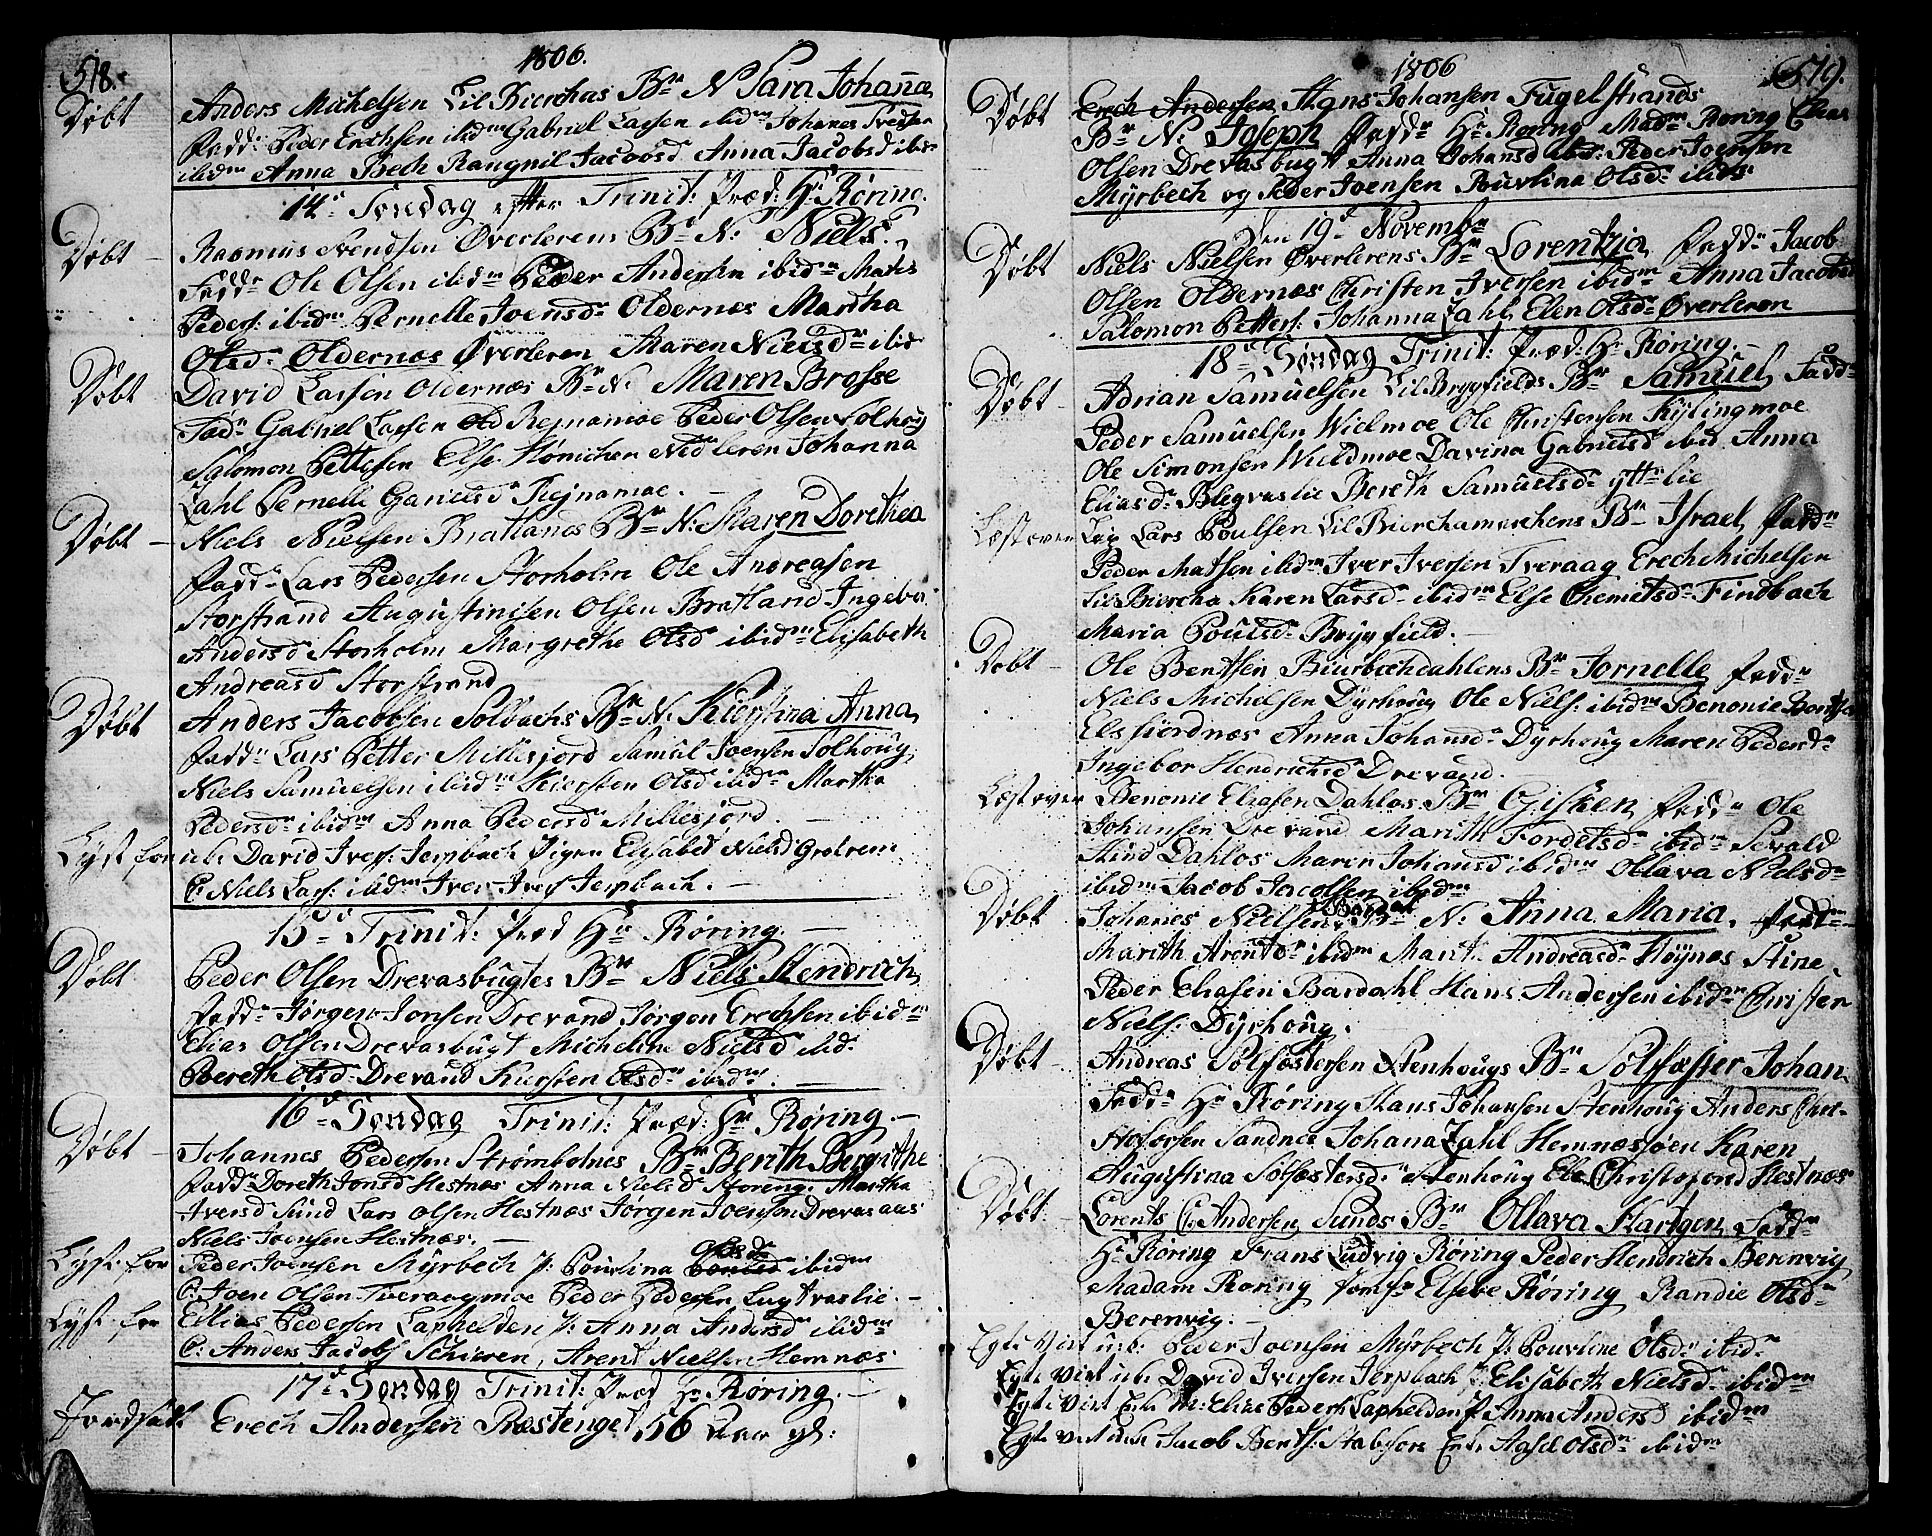 518.
1806.
Døbt
Anders Michelsen Lil Bierchas Bn N Sara Johana
Fadd: Peder Erichsen ibidm Gabriel Larsen ibidm Johanes
ibidm Anna Bech Rangnil Jacobsd Anna Jacobsd ibid
14de Søndag efter Trinit: Præd: Hr Røring.
Døbt
Rasmus Svendsen Øverlerens Bn N: Niels.
Faddr Ole Olsen ibidm Peder Andersen ibidm Mats
Peders: ibidm Pernelle Joensdr Oldernæs Martha
Olsdr Oldernæs Øverleren Maren Nielsdr ibid
Døbt
David Larsen Oldernæs Bn N. Maren Brosse
Fadr Gabriel Larsen Rejnamoe Peder Olsen Solhoug
Salomon Pettersen Else Hemichen Nedleren Johanna
Zahl Pernelle Ganielsd Rejnamoe.
Døbt
Niels Nielsen Bratlands Bn N: Maren Dorethea
Faddr Lars Pedersen Storholm Ole Andreasen
Storstrand Augustinisen Olsen Bratland Ingebor
Andersd Storholm Margrethe Olsd ibidm Elisabeth
Andreasd Storstrand
Døbt
Anders Jacobsen Solbachs Bn N. Kierstina Anna
Faddr Lars Petter Millesjord Samuel Joensen Solhoug
Niels Samuelsen ibidm Kiersten Olsd ibidm Martha
Pedersdr ibidm Anna Pedersd Millesjord.
Lyst for
David Ivers: Jerpbach Pigen Elisabet Nielsd
C: Niels Lars: ibidm Iver Ivers Jerpbach.
15de Trinit: Præd Hr Røring.
Døbt
Peder Olsen Drevasbugtes Bn Niels Hendrich
Faddr Jørgen Jonsen Drevand Jørgen Erechsen ibidm
Elias Olsen Drevasbugt Micheline Nielsd ibid.
Bereth Olsdr Drevand Kirsten Olsdr ibidm.
16de Søndag Trinit: Præd: Hr Røring.
Døbt
Johannes Pedersen Strømbolnes Bn Berith Bergithe
Faddr Doreth Jonsd Hestnæs Anna Nielsd Storeng. Martha
Iversd Sund Lars Olsen Hestnæs Jørgen Joensen Drevas aas
Niels Joensen Hestnæs.
Lyst for
Peder Joensen Myrbech P: Pourlina Olsdr ibidm
C: Joen Olsen Tveraagmoe Peder Pedersen Lugtvaslie.
Lyst for
Elias Pedersen Laphelden P: Anna Andersdr ibidm
C: Anders Jacobs Schieren, Arent Nielsen Hemnæs
17de Søndag Trinit: Præd Hr Røring.
Jordfæst
Erech Andersen Præstenget 56 Aar gl:
1806
519.
Døbt
Erech Andersen Hans Johansen Fugelstrands
Bn N. Joseph Faddr Hr Røring Madm Røring Elias
Olsen Drevasbugt Anna Johansd ibid: Peder Joensen
Myrbech og Peder Joensen Pouvlina Olsdr ibids
Den 19de Novembr
Døbt
Niels Nielsen Øverlerens Bn Lorentzia Faddr Jacob
Olsen Oldernæs Christen Iversen ibidm Anna Jacobsd
Salomon Petters: Johanna Zahl, Elen Olsdr Øverleren
18de Søndag Trinit: Præd: Hr Røring.
Døbt
Adrian Samuelsen Lil Brygfields Bn Samuel Faddr
Peder Samuelsen Wielmoe Ole Christensen Kylingmoe
Ole Simonsen Wieldmoe Davina Gabrielsd ibid Anna
Eliasd: Blegvaslie Bereth Samuelsdr Ytterlie
Læst over
Lars Poulsen Lil Bierchamarchens Bn Israel, Faddr
Peder Matsen ibidm Iver Iversen Tveraag Erech Michelsen
Lil Biercha Karen Larsdr ibidm Else Chemetsdr Findbach
Maria Poulsdr Brygfield.
Døbt
Ole Bentsen Biurbechdahlens Bn Jornelle Faddr
Niels Michelsen Dyrhoug Ole Niels: ibidm Benonie Bentsen
Elsfiordnæs Anna Johansdr Dyrhoug Maren Pedersdr
Ingebor Hendrichsd Drevand.
Læst over
Benonie Eliasen Dahlos Bn Gisken, Faddr Ole
Johansen Drevand Marith Fordelsdr ibidm Sevald
Hind Dahlos Maren Johansd ibidm Ollava Nielsdr
ibidm Jacob Jacobsen ibidm
Døbt
Johanes Nielsens Bardal Bn N. Anna Maria. Faddr
Marith Arentsdr ibidm Marit Andreasdr Høynæs Stine
Peder Eliasen Bardahl Hans Andersen ibidm Christen
Niels: Dyrhoug.
Døbt
Andreas Solfæstersen Stenhougs Bn Solfæster Johan
Faddr Hr Røring Hans Johansen Stenhoug Anders Chri-
stofersen Sandnes Johana Zahl Hemnæsøen Karen
Augustina Solfæstersdr Stenhoug Ele Christofersd Hestnæs
Døbt
Lorents Chr Andersen Sunds Bn Ollava Hartgen Faddr
Hr Røring Frans Ludvig Røring Peder Hendrich Berenvig
Madam Røring Jomfr Elsebe Røring Randie Olsdr
Berenvig.
Egteviet Peder Joensen Myrbech P: Pourline Olsdr ibidm
Egteviet David Iversen Jerpbach P: Elisabeth Nielsdr ibidm
Egteviet Elias Peders: Laphelden P: Anna Andersd ibidm
Egteviet Jacob Bents: Stabfors Enke Aasel Olsdr ibidm